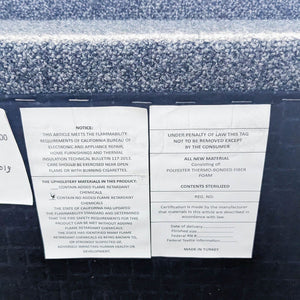 00
019
NOTICE:
THIS ARTICLE MEETS THE FLAMMABILITY
REQUIREMENTS OF CALIFORNIA BUREAU OF
ELECTRONIC AND APPLIANCE REPAIR,
HOME FURNISHINGS AND THERMAL
INSULATION TECHNICAL BULLETIN 117-2013.
CARE SHOULD BE EXERCISED NEAR OPEN
FLAME OR WITH BURNING CIGARETTES.
THE UPHOLSTERY MATERIALS IN THIS PRODUCT:
CONTAIN ADDED FLAME RETARDANT
CHEMICALS
CONTAIN NO ADDED FLAME RETARDANT
CHEMICALS
THE STATE OF CALIFORNIA HAS UPDATED
THE FLAMMABILITY STANDARD AND DETERMINED
THAT THE FIRE SAFETY REQUIREMENTS FOR THIS
PRODUCT CAN BE MET WITHOUT ADDING
FLAME RETARDANT CHEMICALS.
THE STATE HAS IDENTIFIED MANY FLAME
RETARDANT CHEMICALS AS BEING KNOWN TO,
OR STRONGLY SUSPECTED OF,
ADVERSELY IMPACTING HUMAN HEALTH OR
DEVELOPMENT.
UNDER PENALTY OF LAW THIS TAG
NOT TO BE REMOVED EXCEPT
BY THE CONSUMER
ALL NEW MATERIAL
Consisting of
POLYESTER THERMO BONDED FIBER
FOAM
CONTENTS STERILIZED
REG. NO.
Certification is made by the manufacturer
that materials in this article are described in
accordance with law.
Date of delivery
Finished size
Federal RN #
Federal Textile Information
MADE IN TURKEY